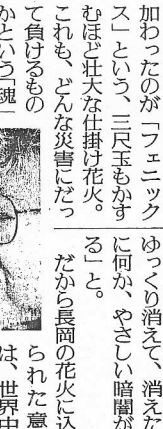 加わったのが「フェニック
ス」という、三尺玉もかす
むほど壮大な仕掛け花火。
これも、どんな災害にだっ
て負けるもの
かという「魂
ゆっくり消えて、消えた
に何か、やさしい暗闇が
る」と。
だから長岡の花火に込
られた意
は、世界中